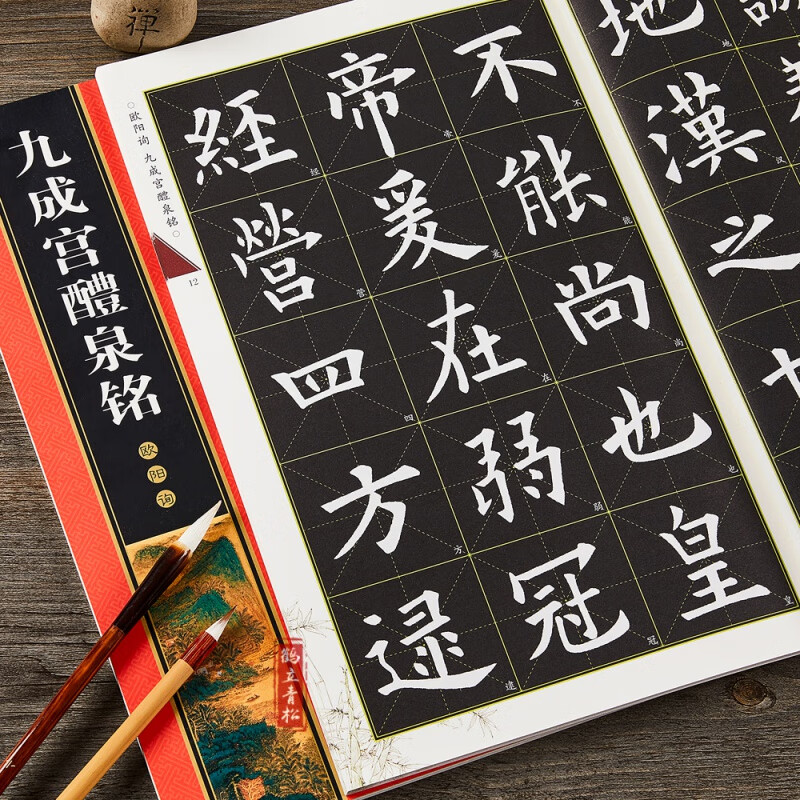 禪
九成宫醴泉铭
欧阳询
○欧阳询 九成宫醴泉铭○
12
地漢之
地
汉
不能尚也皇
不
能
尚
也
皇
帝爰在弱冠
帝
爰
在
弱
冠
經營四方逮
经
营
四
方
逮
鹤立青松